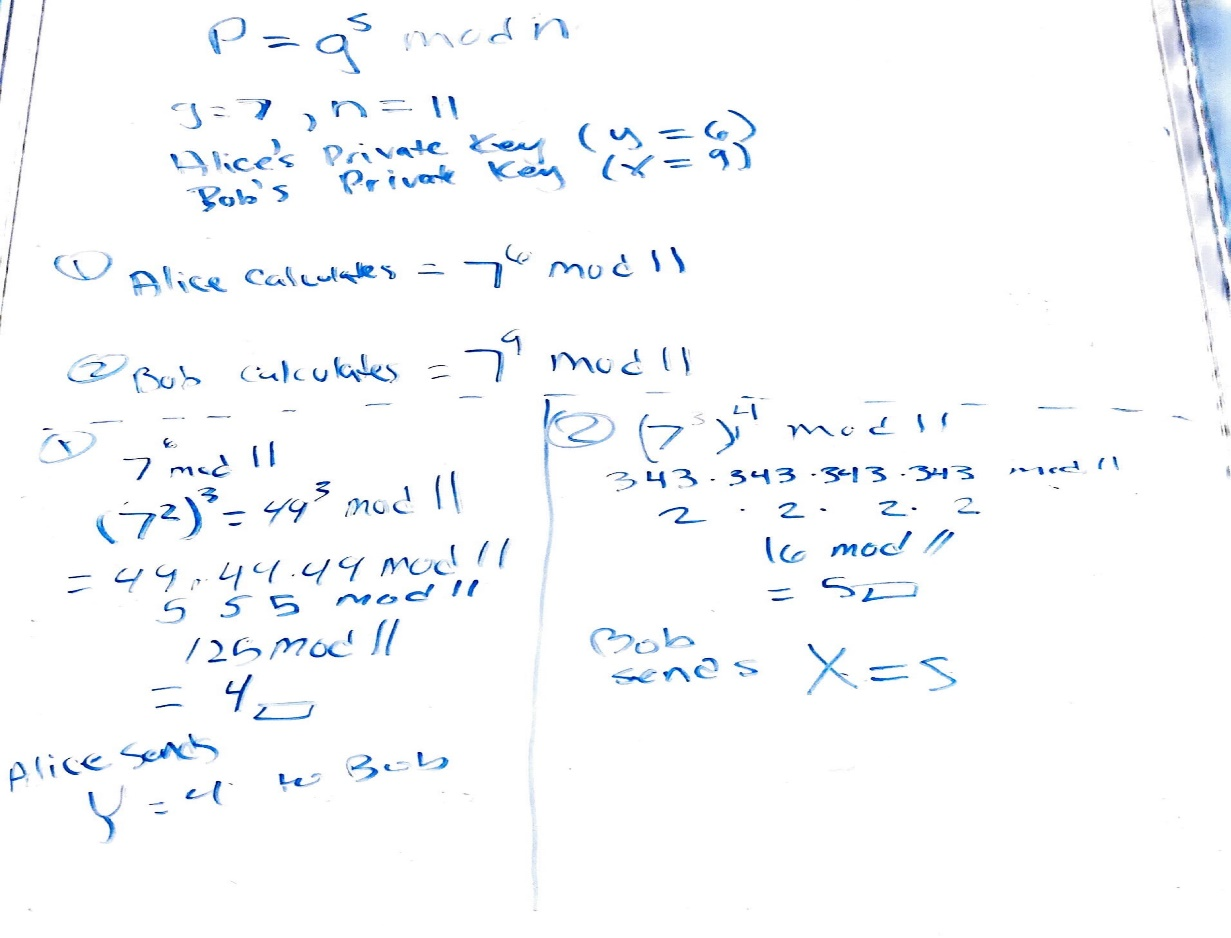 P = g^s mod n
g=7, n=11
Alice's Private Key (y=6)
Bob's Private Key (x=9)
① Alice calculates = 7^6 mod 11
② Bob calculates = 7^9 mod 11
①
7^6 mod 11
(7^2)^3 = 49^3 mod 11
= 49.49.49 mod 11
5 5 5 mod 11
125 mod 11
= 4
Alice sends
Y=4 to Bob
② (7^3)^4 mod 11
343.343.343.343 mod 11
2 . 2 . 2. 2
16 mod 11
= 5
Bob
sends X=5